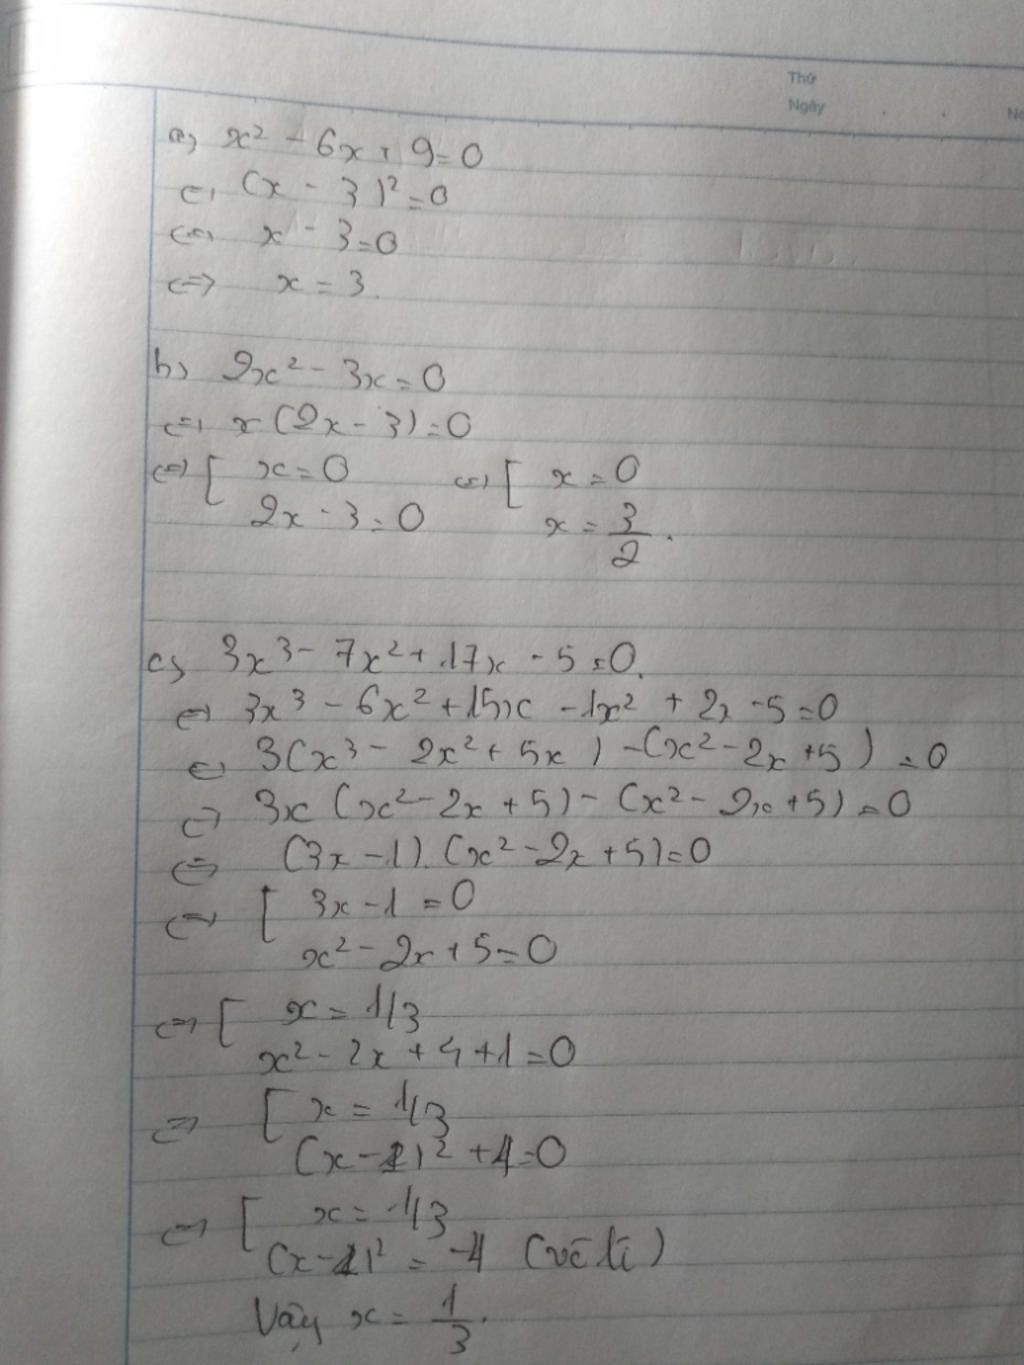 Thứ
Ngày
a) x² - 6x + 9 = 0
⇔ (x - 3)² = 0
⇔ x - 3 = 0
⇔ x = 3.
b) 2x² - 3x = 0
⇔ x(2x - 3) = 0
⇔ [ x = 0 ⇔ [ x = 0
2x - 3 = 0 x = 3/2.
c) 3x³ - 7x² + 17x - 5 = 0.
⇔ 3x³ - 6x² + 15x - 1x² + 2x - 5 = 0
⇔ 3(x³ - 2x² + 5x) - (x² - 2x + 5) = 0
⇔ 3x(x² - 2x + 5) - (x² - 2x + 5) = 0
⇔ (3x - 1).(x² - 2x + 5) = 0
⇔ [ 3x - 1 = 0
x² - 2x + 5 = 0
⇔ [ x = 1/3
x² - 2x + 4 + 1 = 0
⇔ [ x = 1/3
(x - 1)² + 4 = 0
⇔ [ x = 1/3
(x - 1)² = -4 (vô lí)
Vậy x = 1/3.